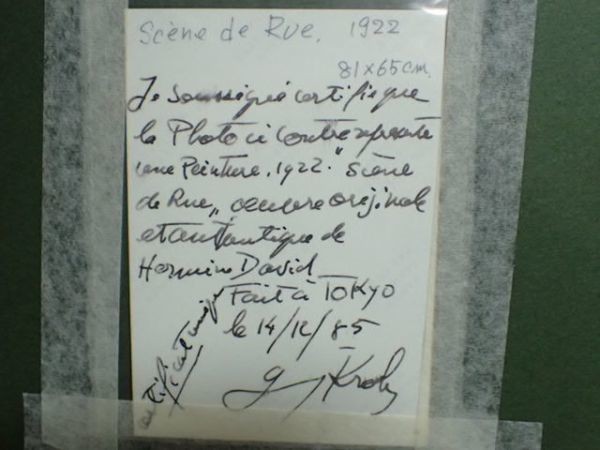 Scène de Rue. 1922
81x65cm.
Je soussigné certifie que
la Photo ci contre représente
une Peinture, 1922. "Scène
de Rue", oeuvre originale
et authentique de
Hermine David
Fait à TOKYO
le 14/12/85
certificat unique